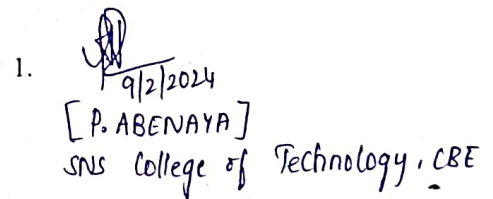 1.
9/2/2024
[P. ABENAYA]
SNS College of Technology, CBE